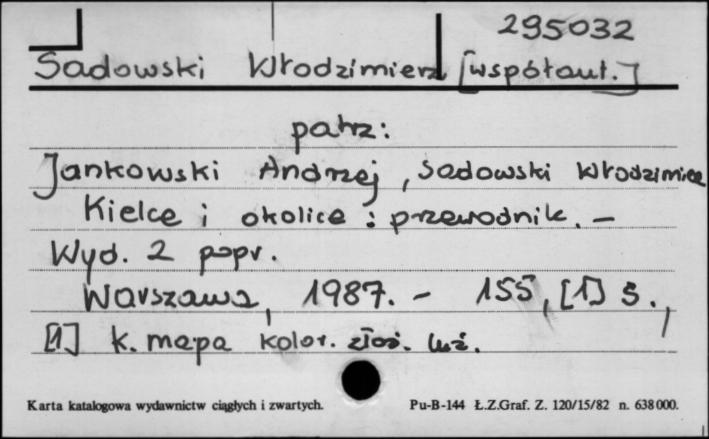 295032
Sadowski Włodzimierz [współaut.]
patrz:
Jankowski Andrzej, Sadowski Włodzimierz
Kielce i okolice : przewodnik. –
Wyd. 2 popr.
Warszawa, 1987. – 155, [1] s.,
[1] k. mapa kolor. złoż. luź.
Karta katalogowa wydawnictw ciągłych i zwartych. Pu-B-144 Ł.Z.Graf. Z. 120/15/82 n. 638 000.